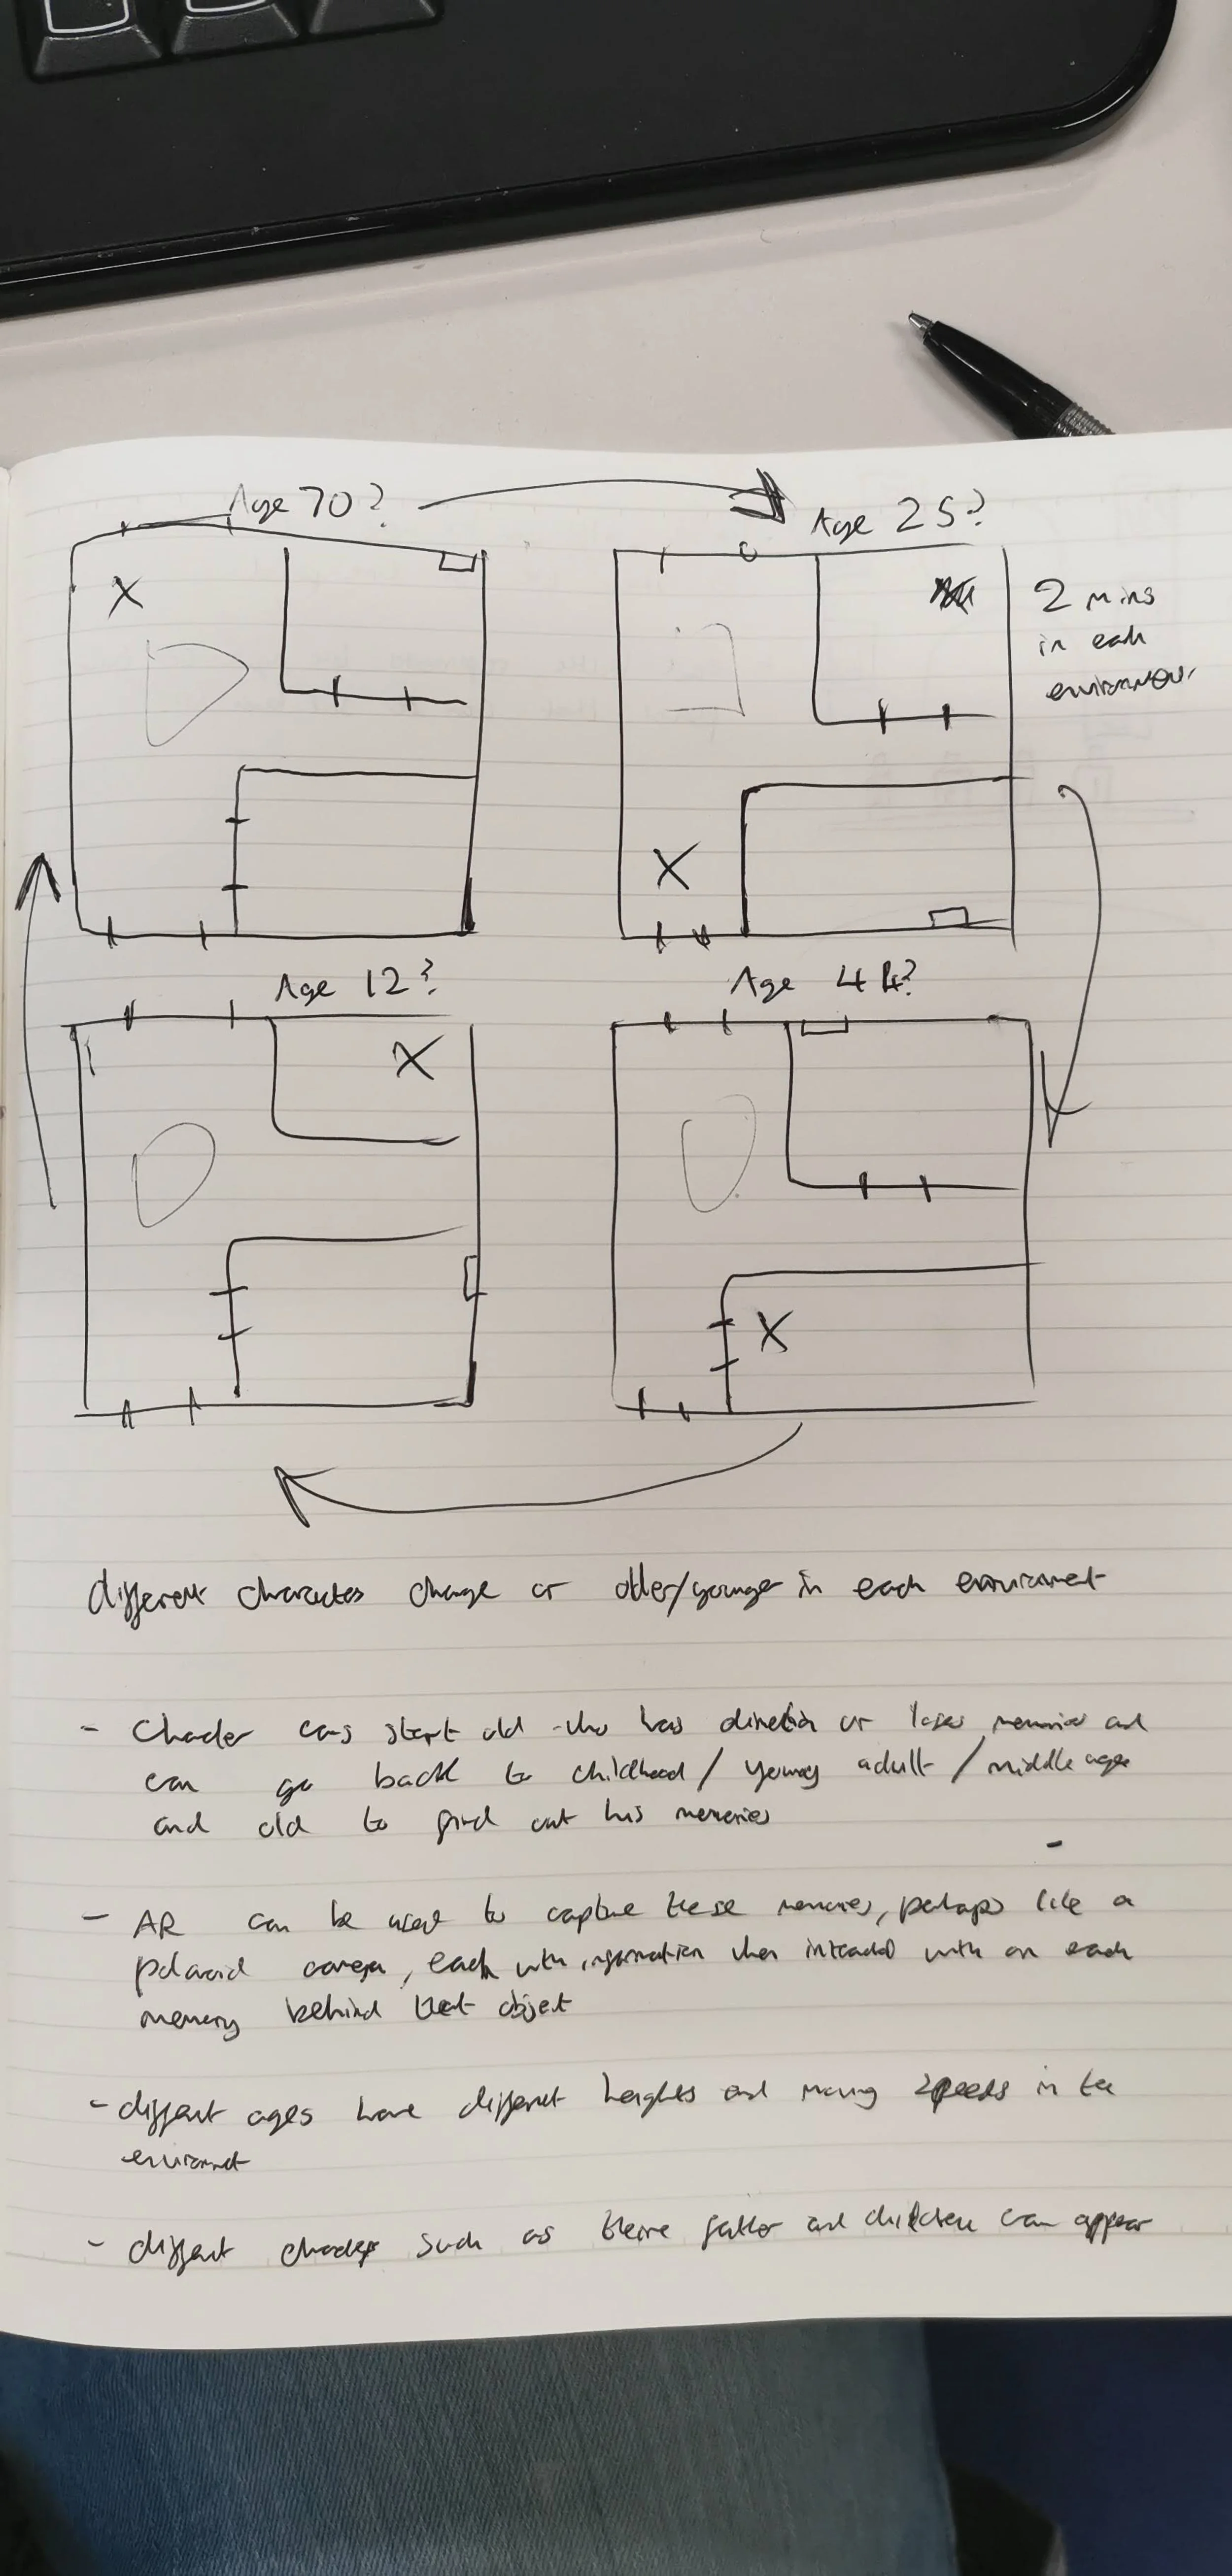 Age 70?
Age 25?
2 mins
in each
Age 12?
Age 44?
different characters change or older/younger in each environment
- can start old who has or loses memories and
can go back to childhood / young adult / middle ages
and old to find out his memories
- AR can be used to capture these memories, perhaps like a
polaroid camera, each with information when with on each
memory behind that object
- different ages have different heights and moving speeds in the
- different such as father and children can appear